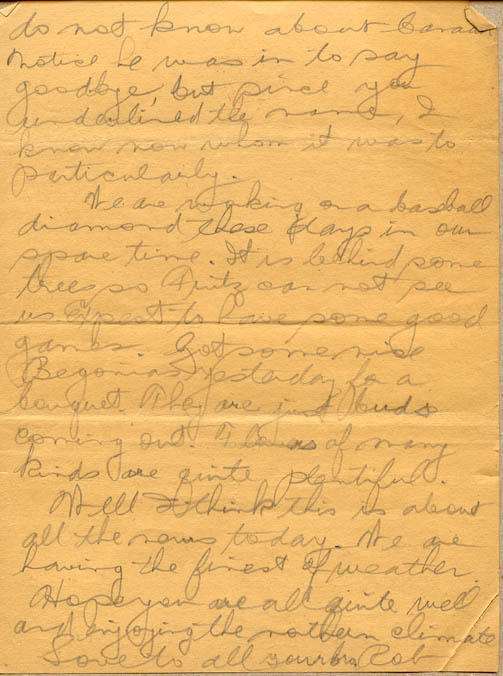 do not know about
Notice he was in to say
goodbye, but since you
underlined the name, I
know now whom it was to
particularily.
We are working on a baseball
diamond these days in our
spare time. It is behind some
trees so Fritz can not see
us Expect to have some good
games. Got some nise
Begonias yesterday for a
bouquet. They are just buds
coming out. of many
kinds are quite plentiful.
Well I think this is about
all the news today. We are
having the finest of weather.
Hope you are all quite well
and enjoying the northern climate
Love to all your Rob